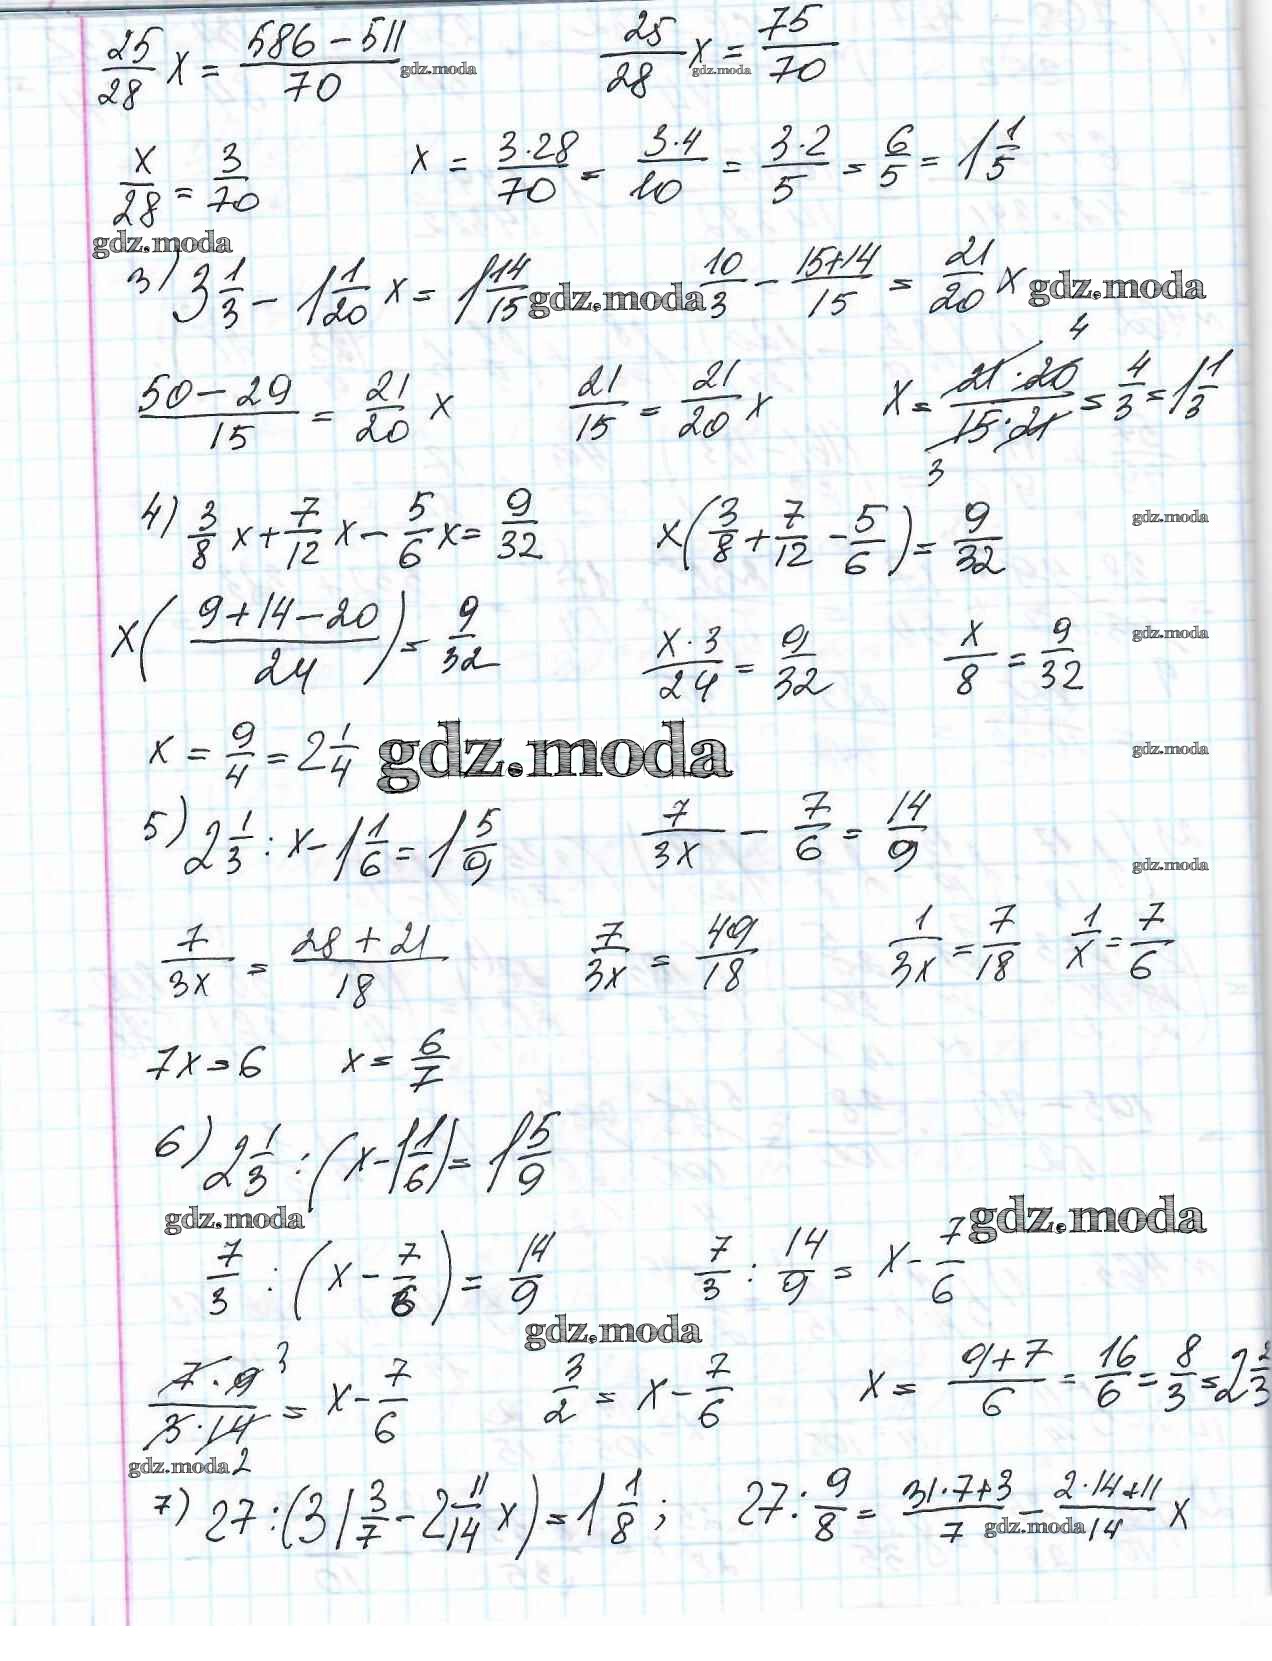 25/28 x = (586 - 511)/70   25/28 x = 75/70
gdz.moda gdz.moda
x/28 = 3/70   x = (3·28)/70 = (3·4)/10 = (3·2)/5 = 6/5 = 1 1/5
gdz.moda
3) 3 1/3 - 1 1/20 x = 1 14/15   10/3 - (15+14)/15 = 21/20 x
gdz.moda gdz.moda
(50 - 29)/15 = 21/20 x   21/15 = 21/20 x   x = (21·20 4)/(15·21 3) = 4/3 = 1 1/3
4) 3/8 x + 7/12 x - 5/6 x = 9/32   x(3/8 + 7/12 - 5/6) = 9/32
gdz.moda
x((9+14-20)/24) = 9/32   (x·3)/24 = 9/32   x/8 = 9/32
gdz.moda
x = 9/4 = 2 1/4
gdz.moda gdz.moda
5) 2 1/3 : x - 1 1/6 = 1 5/9   7/3x - 7/6 = 14/9
gdz.moda
7/3x = (28 + 21)/18   7/3x = 49/18   1/3x = 7/18   1/x = 7/6
7x = 6   x = 6/7
6) 2 1/3 : (x - 1 1/6) = 1 5/9
gdz.moda gdz.moda
7/3 : (x - 7/6) = 14/9   7/3 : 14/9 = x - 7/6
gdz.moda
(7·9 3)/(3·14 2) = x - 7/6   3/2 = x - 7/6   x = (9+7)/6 = 16/6 = 8/3 = 2 2/3
gdz.moda
7) 27 : (31 3/7 - 2 11/14 x) = 1 1/8 ;   27 : 9/8 = (31·7+3)/7 - (2·14+11)/14 x
gdz.moda